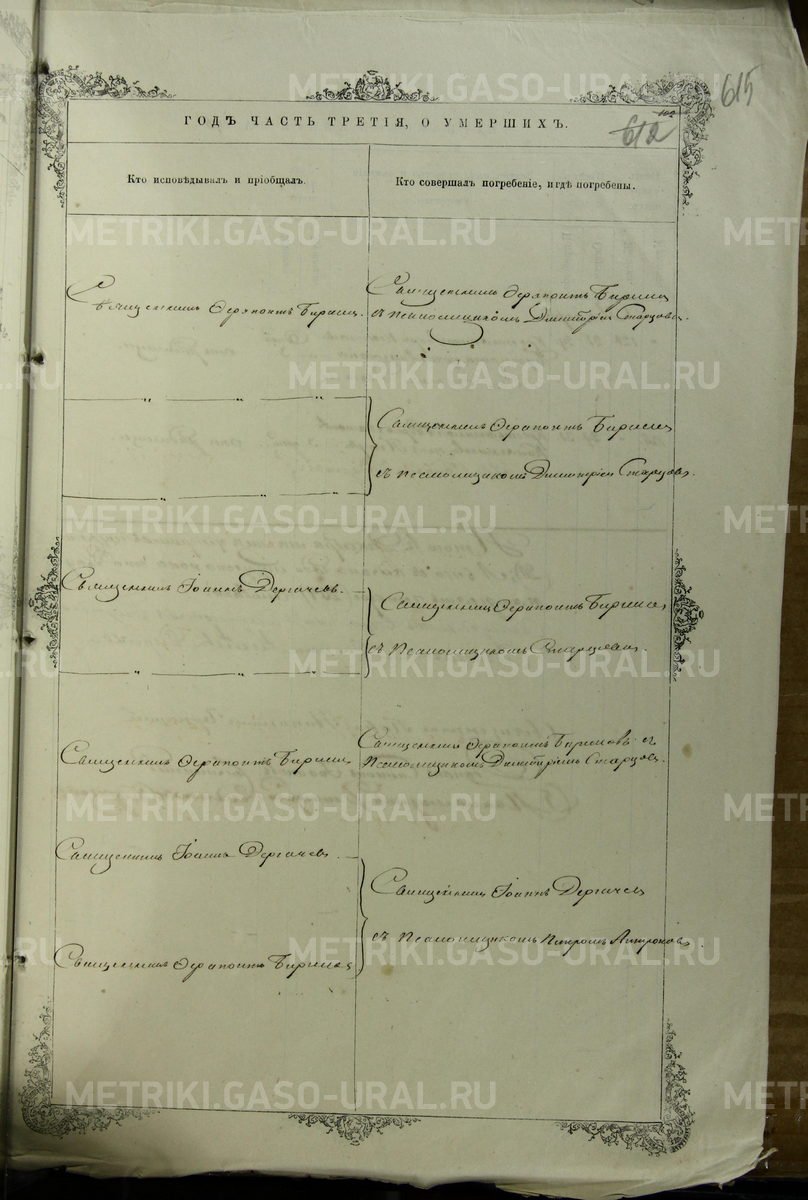 615
612
ГОДЪ ЧАСТЬ ТРЕТІЯ, О УМЕРШИХЪ.
Кто исповѣдывалъ и пріобщалъ.
Кто совершалъ погребеніе, и гдѣ погребены.
Священникъ Ѳерапонтъ
Священникъ Ѳерапонтъ
съ Псаломщикомъ Димитріемъ Старцевы
Священникъ Ѳерапонтъ
съ Псаломщикомъ Димитріем Старцевы
Священникъ Іоаннъ Дергачевъ.
Священникъ Ѳерапонтъ
съ Псаломщикомъ Старцевы
Священникъ Ѳерапонтъ
Священникъ Ѳерапонтъ съ
Псаломщикомъ Димитріемъ Старцев
Священникъ Іоаннъ Дергачевъ.
Священникъ Іоаннъ Дергачев
съ Псаломщикомъ Петромъ
Священникъ Ѳерапонтъ
METRIKI.GASO-URAL.RU